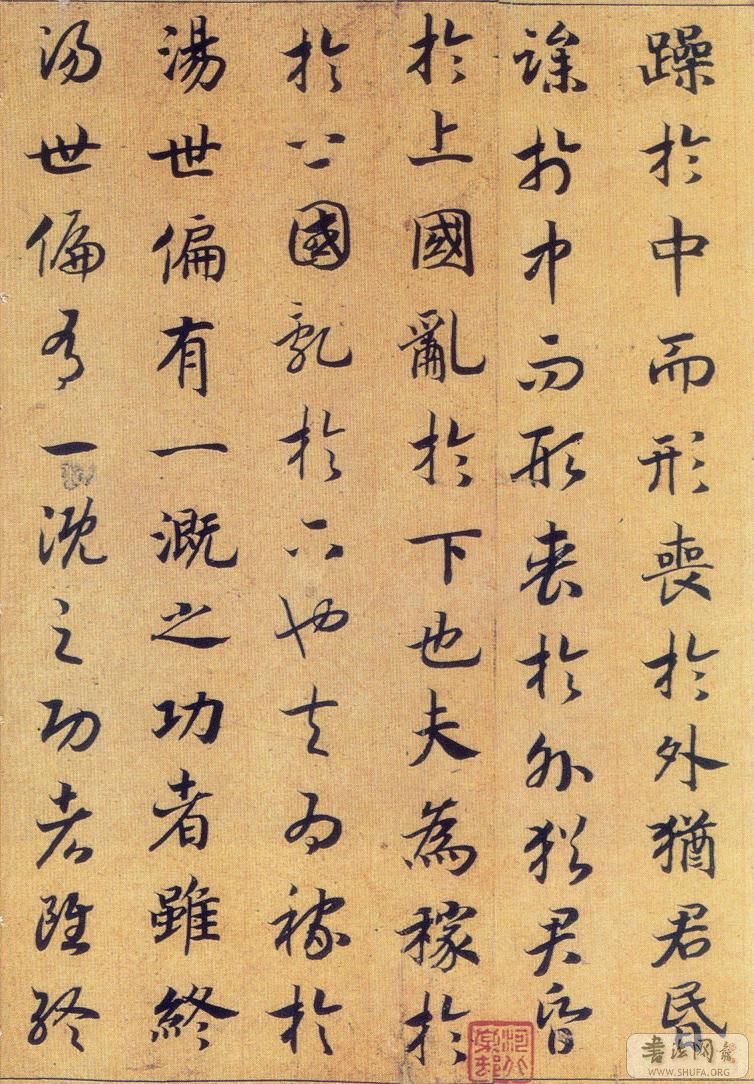 躁於中而形喪於外猶君昬
躁於中而形喪於外猶君昏
於上國亂於下也夫為稼於
於上國亂於下也夫為稼於
湯世偏有一溉之功者雖終
湯世偏有一溉之功者雖終
书法网
WWW.SHUFA.ORG